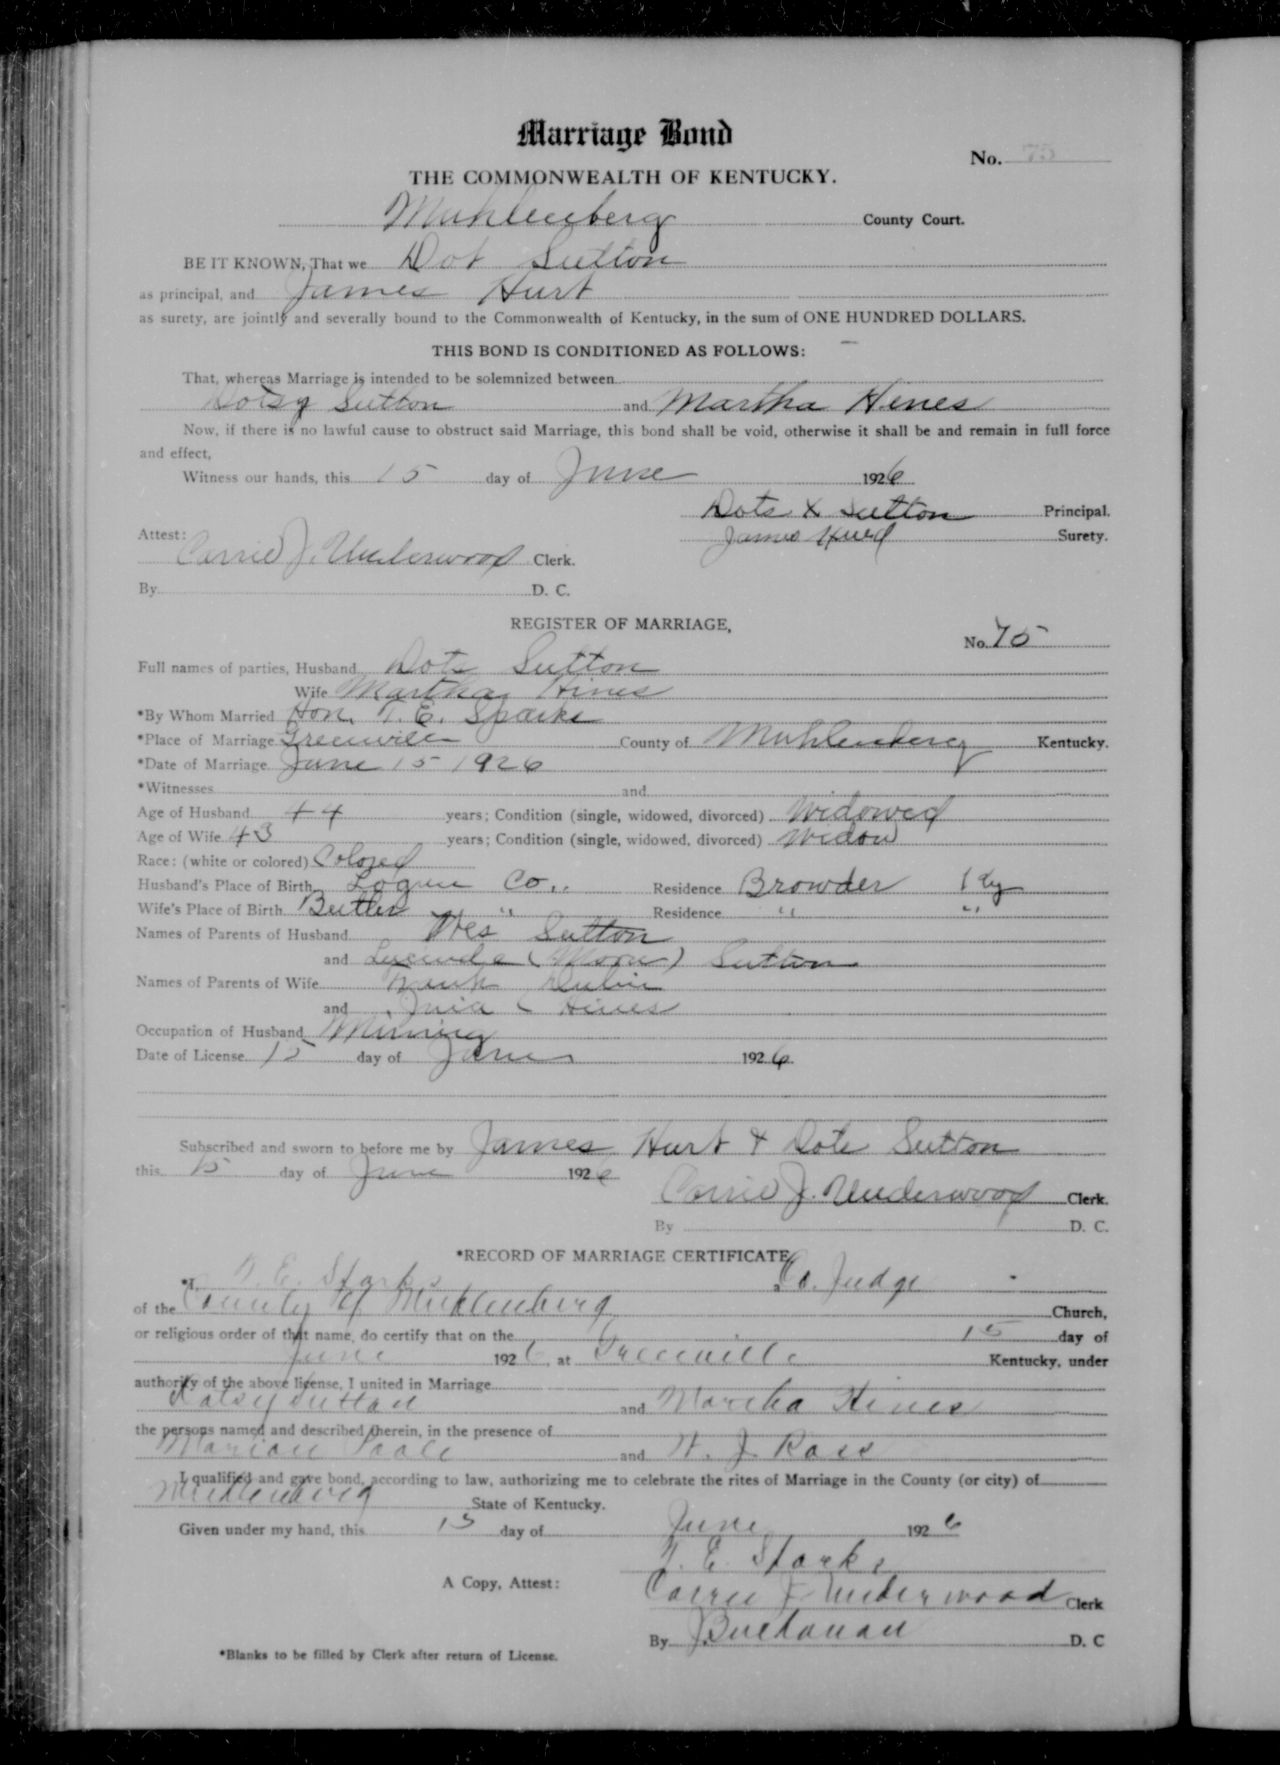 Marriage Bond
No. 75
THE COMMONWEALTH OF KENTUCKY.
Muhlenberg County Court.
BE IT KNOWN, That we Dot Sutton
as principal, and James Hurt
as surety, are jointly and severally bound to the Commonwealth of Kentucky, in the sum of ONE HUNDRED DOLLARS.
THIS BOND IS CONDITIONED AS FOLLOWS:
That, whereas Marriage is intended to be solemnized between
Dotsy Sutton and Martha Hines
Now, if there is no lawful cause to obstruct said Marriage, this bond shall be void, otherwise it shall be and remain in full force
and effect,
Witness our hands, this 15 day of June 1926
Dots X Sutton Principal.
Attest: James Hurd Surety.
Carrie J. Underwood Clerk.
By D. C.
REGISTER OF MARRIAGE,
No. 75
Full names of parties, Husband Dots Sutton
Wife Martha Hines
*By Whom Married Hon. T. E. Sparks
*Place of Marriage Greenville County of Muhlenberg Kentucky.
*Date of Marriage June 15 1926
*Witnesses and
Age of Husband 44 years; Condition (single, widowed, divorced) Widowed
Age of Wife 43 years; Condition (single, widowed, divorced) Widow
Race: (white or colored) Colored
Husband's Place of Birth Logan Co., Residence Browder Ky
Wife's Place of Birth Butler " Residence " "
Names of Parents of Husband Wes Sutton
and (Moore) Sutton
Names of Parents of Wife
and Hines
Occupation of Husband Mining
Date of License 15 day of June 1926
Subscribed and sworn to before me by James Hurt & Dots Sutton
this 15 day of June 1926
Carrie J. Underwood Clerk.
By D. C.
*RECORD OF MARRIAGE CERTIFICATE
*I, T. E. Sparks Co. Judge
of the County of Muhlenberg Church,
or religious order of that name, do certify that on the 15 day of
June 1926, at Greenville Kentucky, under
authority of the above license, I united in Marriage
Dotsy Sutton and Martha Hines
the persons named and described therein, in the presence of
Marian and W. J. Ross
I qualified and gave bond, according to law, authorizing me to celebrate the rites of Marriage in the County (or city) of
Muhlenberg State of Kentucky.
Given under my hand, this 15 day of June 1926
T. E. Sparks
A Copy, Attest: Carrie J Underwood Clerk
By J Buchanan D. C
*Blanks to be filled by Clerk after return of License.